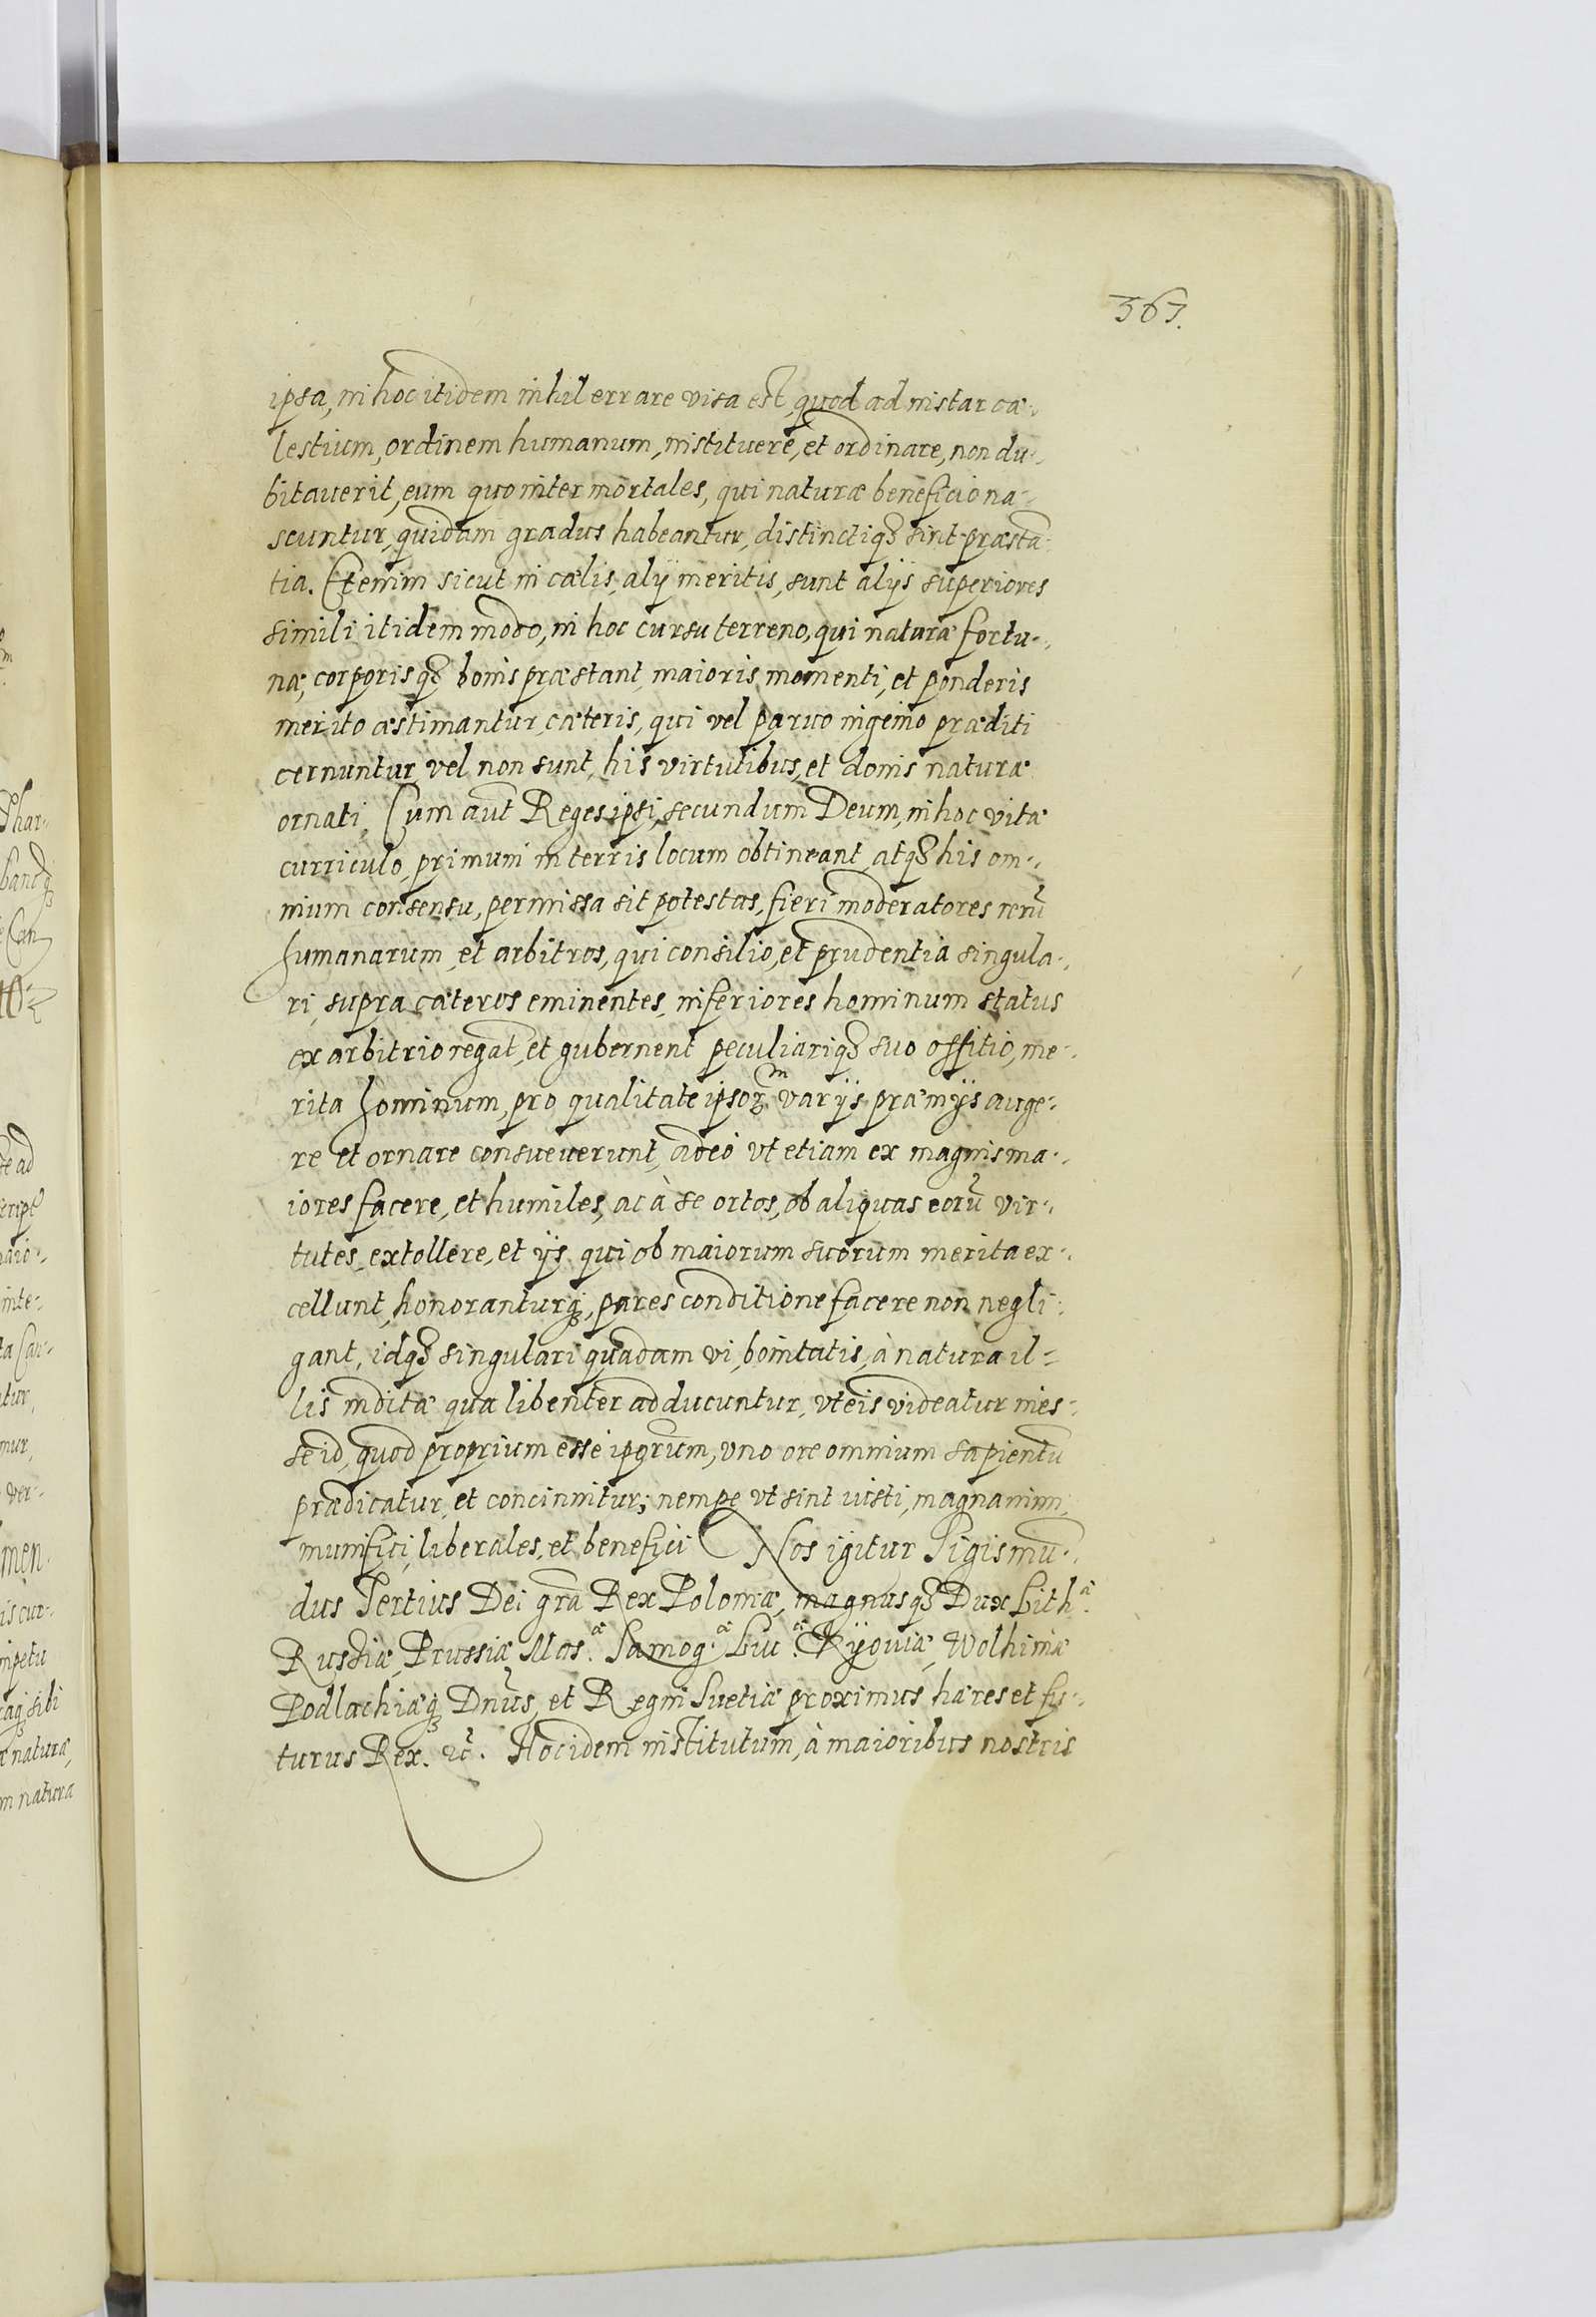 363.
ipsa, in hoc itidem nihil errare visa est, quod ad instar cæ-
lestium, ordinem humanum, instituere, et ordinare, non du-
bitauerit, eum quo inter mortales, qui naturæ beneficio na-
scuntur, quidam gradus habeantur, distinctiq₃ sint præstā-
tia. Etenim sicut in cælis, alÿ meritis, sunt alijs superiores
simili itidem modo, in hoc cursu terreno, qui naturæ fortu-
næ, corporisq₃ bonis præstant, maioris momenti, et ponderis
merito æstimantur, cæteris, qui vel paruo ingenio præditi
cernuntur, vel non sunt, his virtutibus, et donis naturæ
ornati, Cum aut̄ Reges ipsi, secundum Deum, in hoc vitæ
curriculo, primum in terris locum obtineant, atq₃ his om-
nium consensu, permissa sit potestas, fieri moderatores rerū
humanarum, et arbitros, qui consilio, et prudentia singula-
ri, supra cæteros eminentes, inferiores hominum status
ex arbitrio regāt, et gubernent peculiariq₃ suo offitio, me-
rita hominum, pro qualitate ipsoꝝ varÿs præmÿs auge-
re et ornare consueuerunt, adeò vt etiam ex magnis ma-
iores facere, et humiles, ac à se ortos, ob aliquas eorū vir-
tutes, extollere, et ÿs qui ob maiorum suorum merita ex-
cellunt, honoranturq₃, pares conditione facere non negli-
gant, idq₃ singulari quadam vi, bonitatis, à natura il-
lis indita qua libenter adducuntur, vt eis videatur ines-
se id, quod proprium esse iporum, vno ore omnium sapientū
prædicatur, et concinnitur; nempe vt sint iusti, magnanimi,
munifici, liberales, et benefici Nos igitur Sigismū-
dus Tertius Dei grā Rex Poloniæ, magnusq₃ Dux Lith.æ
Russiæ, Prussiæ Mas.æ Samog.æ Liu.æ Kÿouiæ, Wolhiniæ
Podlachiæq₃ Dnūs, et Regni Suetiæ proximus hæres et fu-
turus Rex. ꝛc̄. Hoc idem institutum, à maioribus nostris